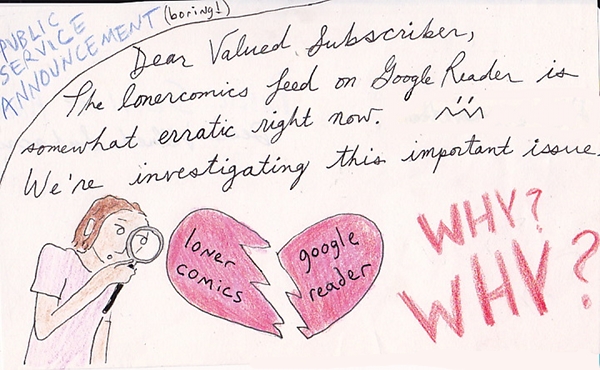 PUBLIC
SERVICE
ANNOUNCEMENT
(boring!)
Dear Valued Subscriber,
The lonercomics feed on Google Reader is
somewhat erratic right now.
We're investigating this important issue.
loner
comics
google
reader
WHY?
WHY?